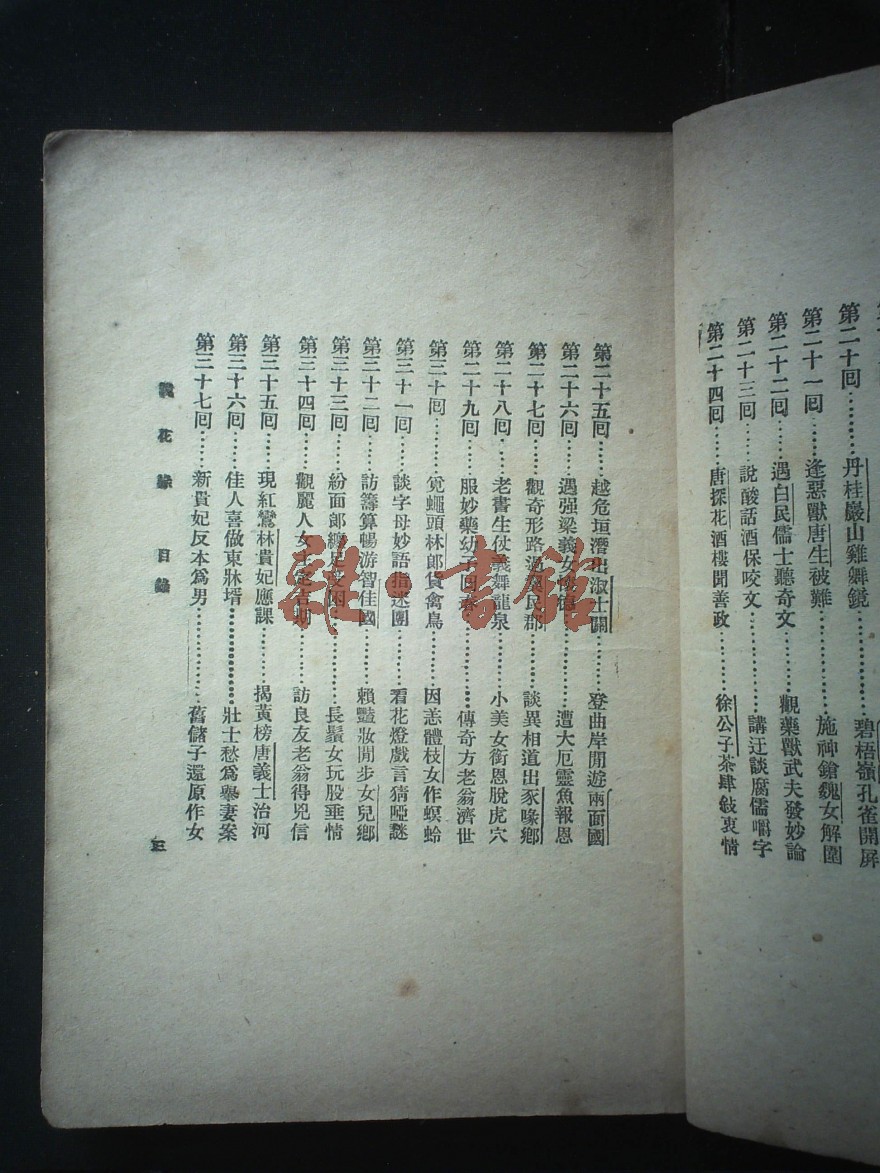 第二十回………丹桂巖山雞舞鏡………碧梧嶺孔雀開屏
第二十一回……逢惡獸唐生被難………施神鎗魏女解圍
第二十二回……遇白民儒士聽奇文………觀藥獸武夫發妙論
第二十三回……說酸話酒保咬文………講迂談腐儒嚼字
第二十四回……唐探花酒樓聞善政………徐公子茶肆敍衷情
第二十五回……越危垣潛出淑士關………登曲岸閒遊兩面國
第二十六回……遇强梁義女懷德………遭大厄靈魚報恩
第二十七回……觀奇形路過翼民郡………談異相道出豕喙鄉
第二十八回……老書生仗義舞龍泉………小美女銜恩脫虎穴
第二十九回……服妙藥幼子回春………傳奇方老翁濟世
第三十回………覓蠅頭林郎貨禽鳥………因恙體枝女作螟蛉
第三十一回……談字母妙語指迷團………看花燈戲言猜啞謎
第三十二回……訪籌算暢游智佳國………賴豔妝閒步女兒鄉
第三十三回……粉面郎纏足受困………長鬚女玩股垂情
第三十四回……觀麗人女主定吉期………訪良友老翁得兇信
第三十五回……現紅鸞林貴妃應課………揭黃榜唐義士治河
第三十六回……佳人喜做東牀壻………壯士愁爲舉妻案
第三十七回……新貴妃反本爲男………舊儲子還原作女
鏡花緣 目錄
三
雜·書館